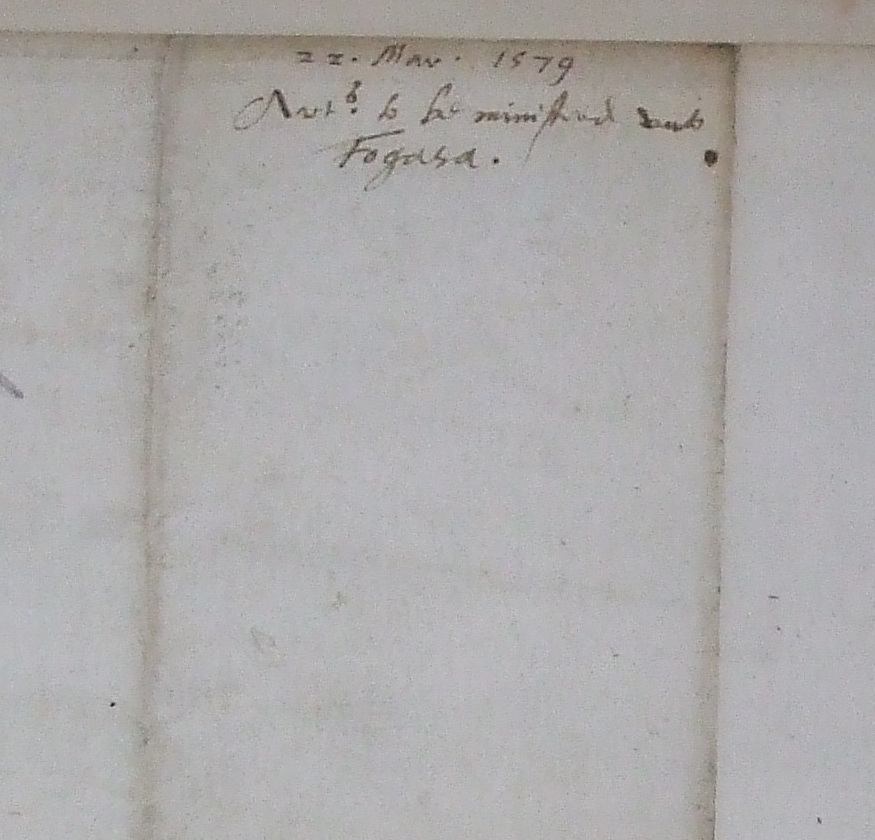 22. Mar. 1579
Art^s. to be ministred
Fogasa.